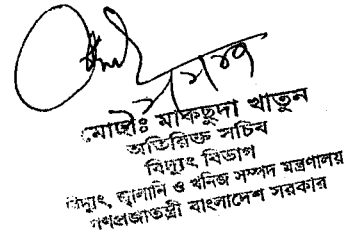 মোছাঃ মাকছুদা খাতুন
অতিরিক্ত সচিব
বিদ্যুৎ বিভাগ
বিদ্যুৎ, জ্বালানি ও খনিজ সম্পদ মন্ত্রণালয়
গণপ্রজাতন্ত্রী বাংলাদেশ সরকার